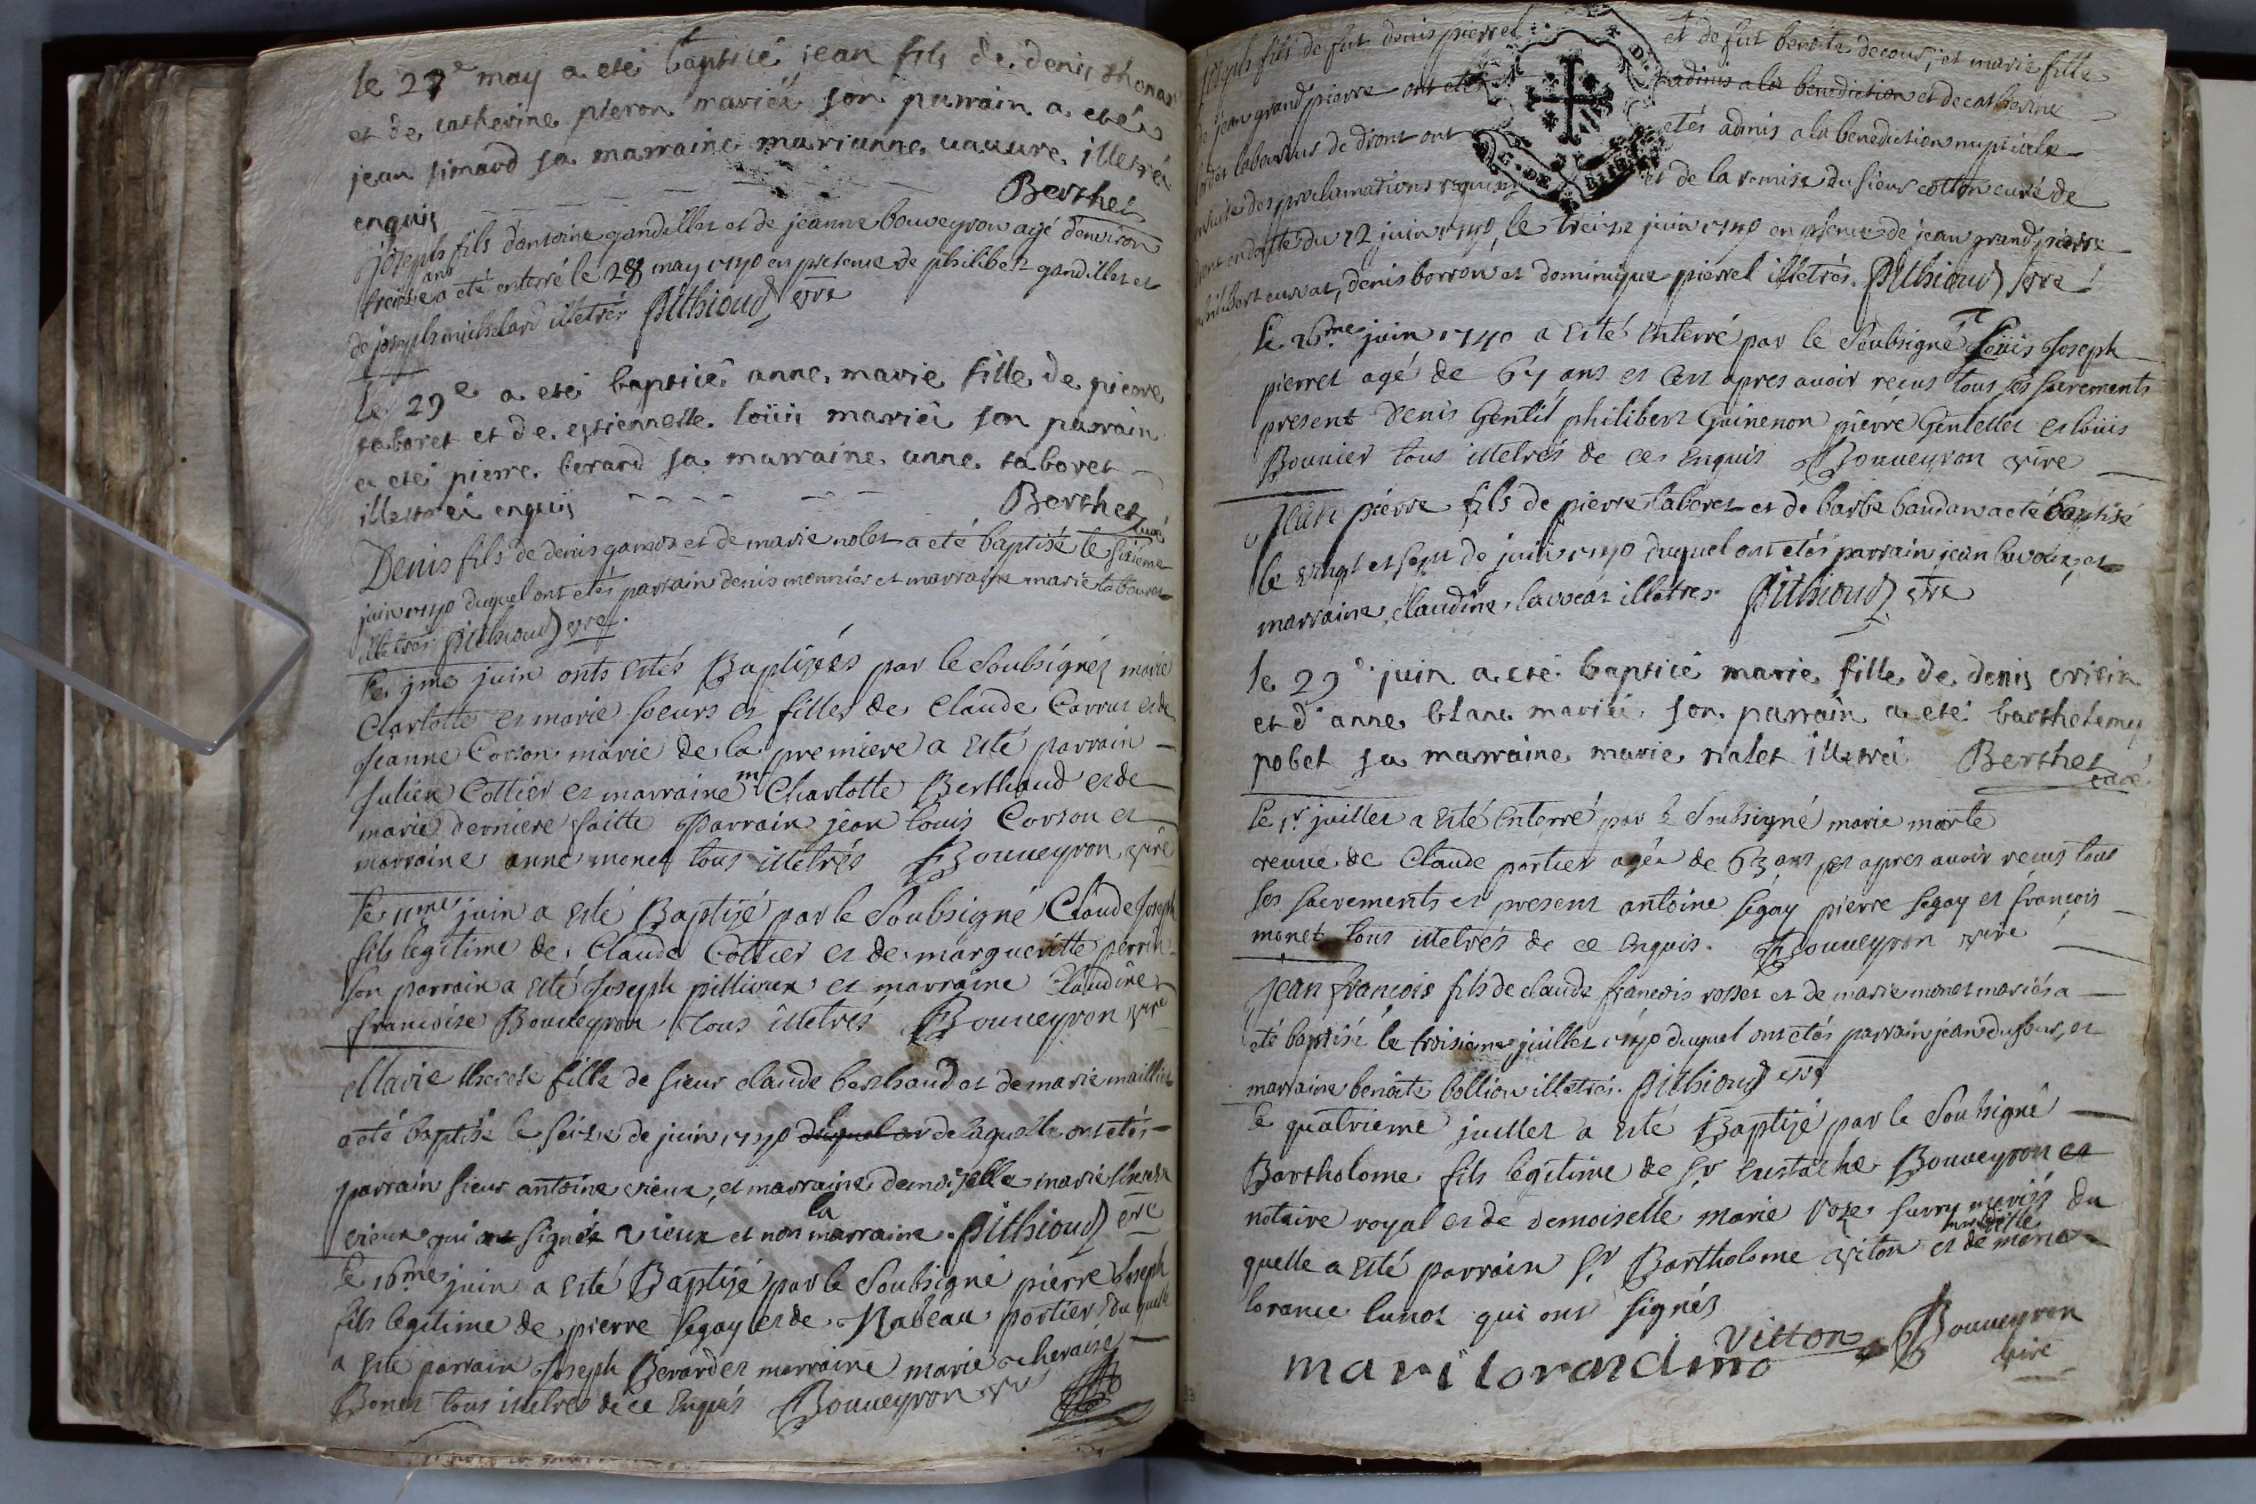 le 27e may a eté bapticé jean fils de denis thoma
et de catherine pieron mariés son parrain a eté
jean simard sa marraine marianne illetré
enquis Berthet
Joseph fils dantoine gandillet et de jeanne bouveyron agé denviron
treize ans a eté enterré le 28 may 1740 en presence de philibert gandillet et
de joseph michelard illetrés Pithioud vre
le 29e a eté bapticé anne marie fille de pierre
taboret et de estiennette loüis mariéi son parrain
a eté pierre berard sa marraine anne taboret
illetréi enquis Berthet curé
Denis fils de denis gamos et de marie nolet a eté baptisé le sixieme
juin 1740 duquel ont etés parrain denis monnier et marraine marie
illetrés Pithioud vre.
le jme juin onts estés Baptizées par le soubsignéz marie
Charlotte et marie soeurs et filles de Claude Carrut et de
Jeanne Corson marie de la premiere a esté parrain
Julien Cottier et marraine me Charlotte Berthaud et de
marie derniere faitte Parrain jean louis Corson et
marraine anne monet tous illetrés Bouveyron vire
le 11me juin a esté Baptizé par le soubsigné Claude Joseph
fils legitime de Claude Cottier et de margueritte perrin
son parrain a esté Joseph pillioux et marraine Claudine
francoise Bouveyron tous illetrés Bouveyron vire
Marie therese fille de sieur claude berthaud et de marie maillier
a eté baptisé le seize de juin 1740 duquel ou de laquelle ont etés
parrain sieur antoine vieux, et marraine demoizelle marie therese
vieux qui ont signés vieux et non la marraine. Pithioud vre
le 16me juin a esté Baptizé par le soubsigné pierre Joseph
fils legitime de pierre Segay et de Nabéau portier du quelle
a esté parrain Joseph Berard et marraine marie
Bonet tous illetrés de ce enquis Bouveyron vre
joseph fils de fut denis pierrel et de fut benoite decour, et marie fille
de jean grand pierre ont etés admis a la benediction et de catherine
de diont ont etés admis a la benediction nuptiale
ensuite des proclamations requises et de la remise du sieur cotton curé de
diont en datte du 12 juin 1740, le treize juin 1740 en presence de jean grand pierre
philibert curvat, denis borron et dominique pierrel illetrés. Pithioud vre
le 26me juin 1740 a esté enterré par le soubsigné Loüis Joseph
pierret agé de 67 ans et cest apres avoir recus tous ses sacrements
present denis Gentil philibert Guinenon pierre Gentellet et loüis
Bounier tous illetrés de ce enquis Bouveyron vire
Jean pierre fils de pierre taboret et de barbe baudan a eté baptisé
le vingt et sept de juin 1740 duquel ont etés parrain jean lavocat, et
marraine claudine lavocat illetrés. Pithioud vre
le 29e juin a eté bapticé marie fille de denis
et d'anne blanc mariéi son parrain a eté barthelemy
pobet sa marraine marie nalet illetréi Berthet curé
le 1r juillet a esté enterré par le soubsigné marie morte
veuve de Claude portier agée de 63 ans et apres avoir recus tous
ses sacrements et present antoine Segay pierre Segay et françois
monet tous illetrés de ce enquis. Bouveyron vire
Jean francois fils de claude françois rosset et de marie monet mariés a
eté baptisé le troisieme juillet 1740 duquel ont etés parrain jean dufour, et
marraine benoite bollion illetrés. Pithioud vre
le quatrieme juillet a esté Baptizé par le soubsigné
Bartholome fils legitime de Sr Eustache Bouveyron et
notaire royal et de demoiselle marie Roze Surry mariés du
quelle a esté parrain Sr Bartholome viton et de moiselle marie
lorance lunot qui ont signés
Vitton Bouveyron
vire